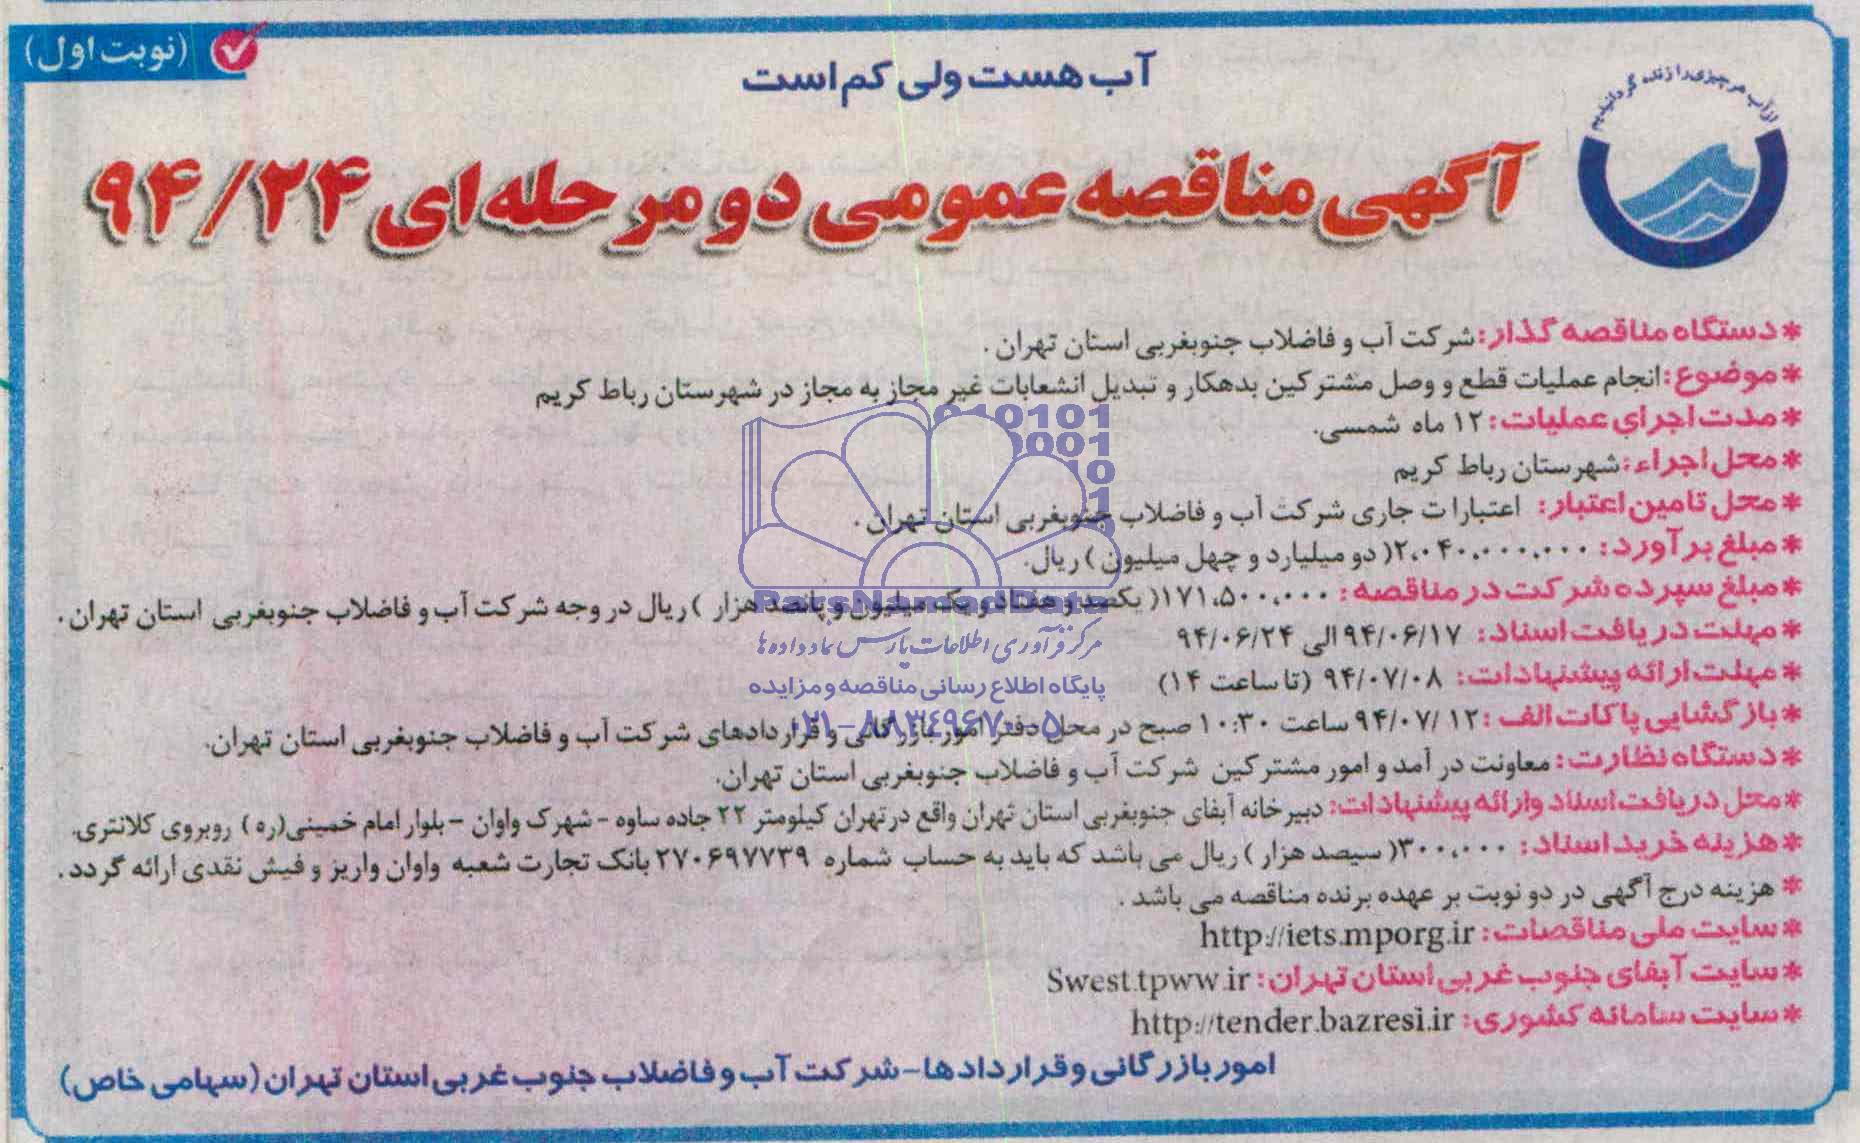 (نوبت اول)
از آب هر چیزی را زنده گردانیدیم
آب هست ولی کم است
آگهی مناقصه عمومی دو مرحله ای ۹۴/۲۴
* دستگاه مناقصه گذار: شرکت آب و فاضلاب جنوبغربی استان تهران .
* موضوع: انجام عملیات قطع و وصل مشترکین بدهکار و تبدیل انشعابات غیر مجاز به مجاز در شهرستان رباط کریم
* مدت اجرای عملیات: ۱۲ ماه شمسی.
* محل اجراء: شهرستان رباط کریم
* محل تامین اعتبار: اعتبارات جاری شرکت آب و فاضلاب جنوبغربی استان تهران .
* مبلغ برآورد: ۲,۰۴۰,۰۰۰,۰۰۰( دو میلیارد و چهل میلیون ) ریال.
* مبلغ سپرده شرکت در مناقصه: ۱۷۱,۵۰۰,۰۰۰( یکصد و هفتاد و یک میلیون و پانصد هزار ) ریال در وجه شرکت آب و فاضلاب جنوبغربی استان تهران .
* مهلت دریافت اسناد: ۹۴/۰۶/۱۷ الی ۹۴/۰۶/۲۴
* مهلت ارائه پیشنهادات: ۹۴/۰۷/۰۸ (تا ساعت ۱۴)
* بازگشایی پاکات الف: ۹۴/۰۷/۱۲ ساعت ۱۰:۳۰ صبح در محل دفتر امور بازرگانی و قراردادهای شرکت آب و فاضلاب جنوبغربی استان تهران.
* دستگاه نظارت: معاونت درآمد و امور مشترکین شرکت آب و فاضلاب جنوبغربی استان تهران.
* محل دریافت اسناد و ارائه پیشنهادات: دبیرخانه آبفای جنوبغربی استان تهران واقع در تهران کیلومتر ۲۲ جاده ساوه - شهرک واوان - بلوار امام خمینی(ره) روبروی کلانتری.
* هزینه خرید اسناد: ۳۰۰,۰۰۰( سیصد هزار ) ریال می باشد که باید به حساب شماره ۲۷۰۶۹۷۷۳۹ بانک تجارت شعبه واوان واریز و فیش نقدی ارائه گردد .
* هزینه درج آگهی در دو نوبت بر عهده برنده مناقصه می باشد .
* سایت ملی مناقصات: http://iets.mporg.ir
* سایت آبفای جنوب غربی استان تهران: Swest.tpww.ir
* سایت سامانه کشوری: http://tender.bazresi.ir
امور بازرگانی و قراردادها - شرکت آب و فاضلاب جنوب غربی استان تهران (سهامی خاص)
ParsNamadData
مرکز فرآوری اطلاعات پارس نماد داده ها
پایگاه اطلاع رسانی مناقصه و مزایده
۰۲۱-۸۸۳۴۹۶۷۰-۵